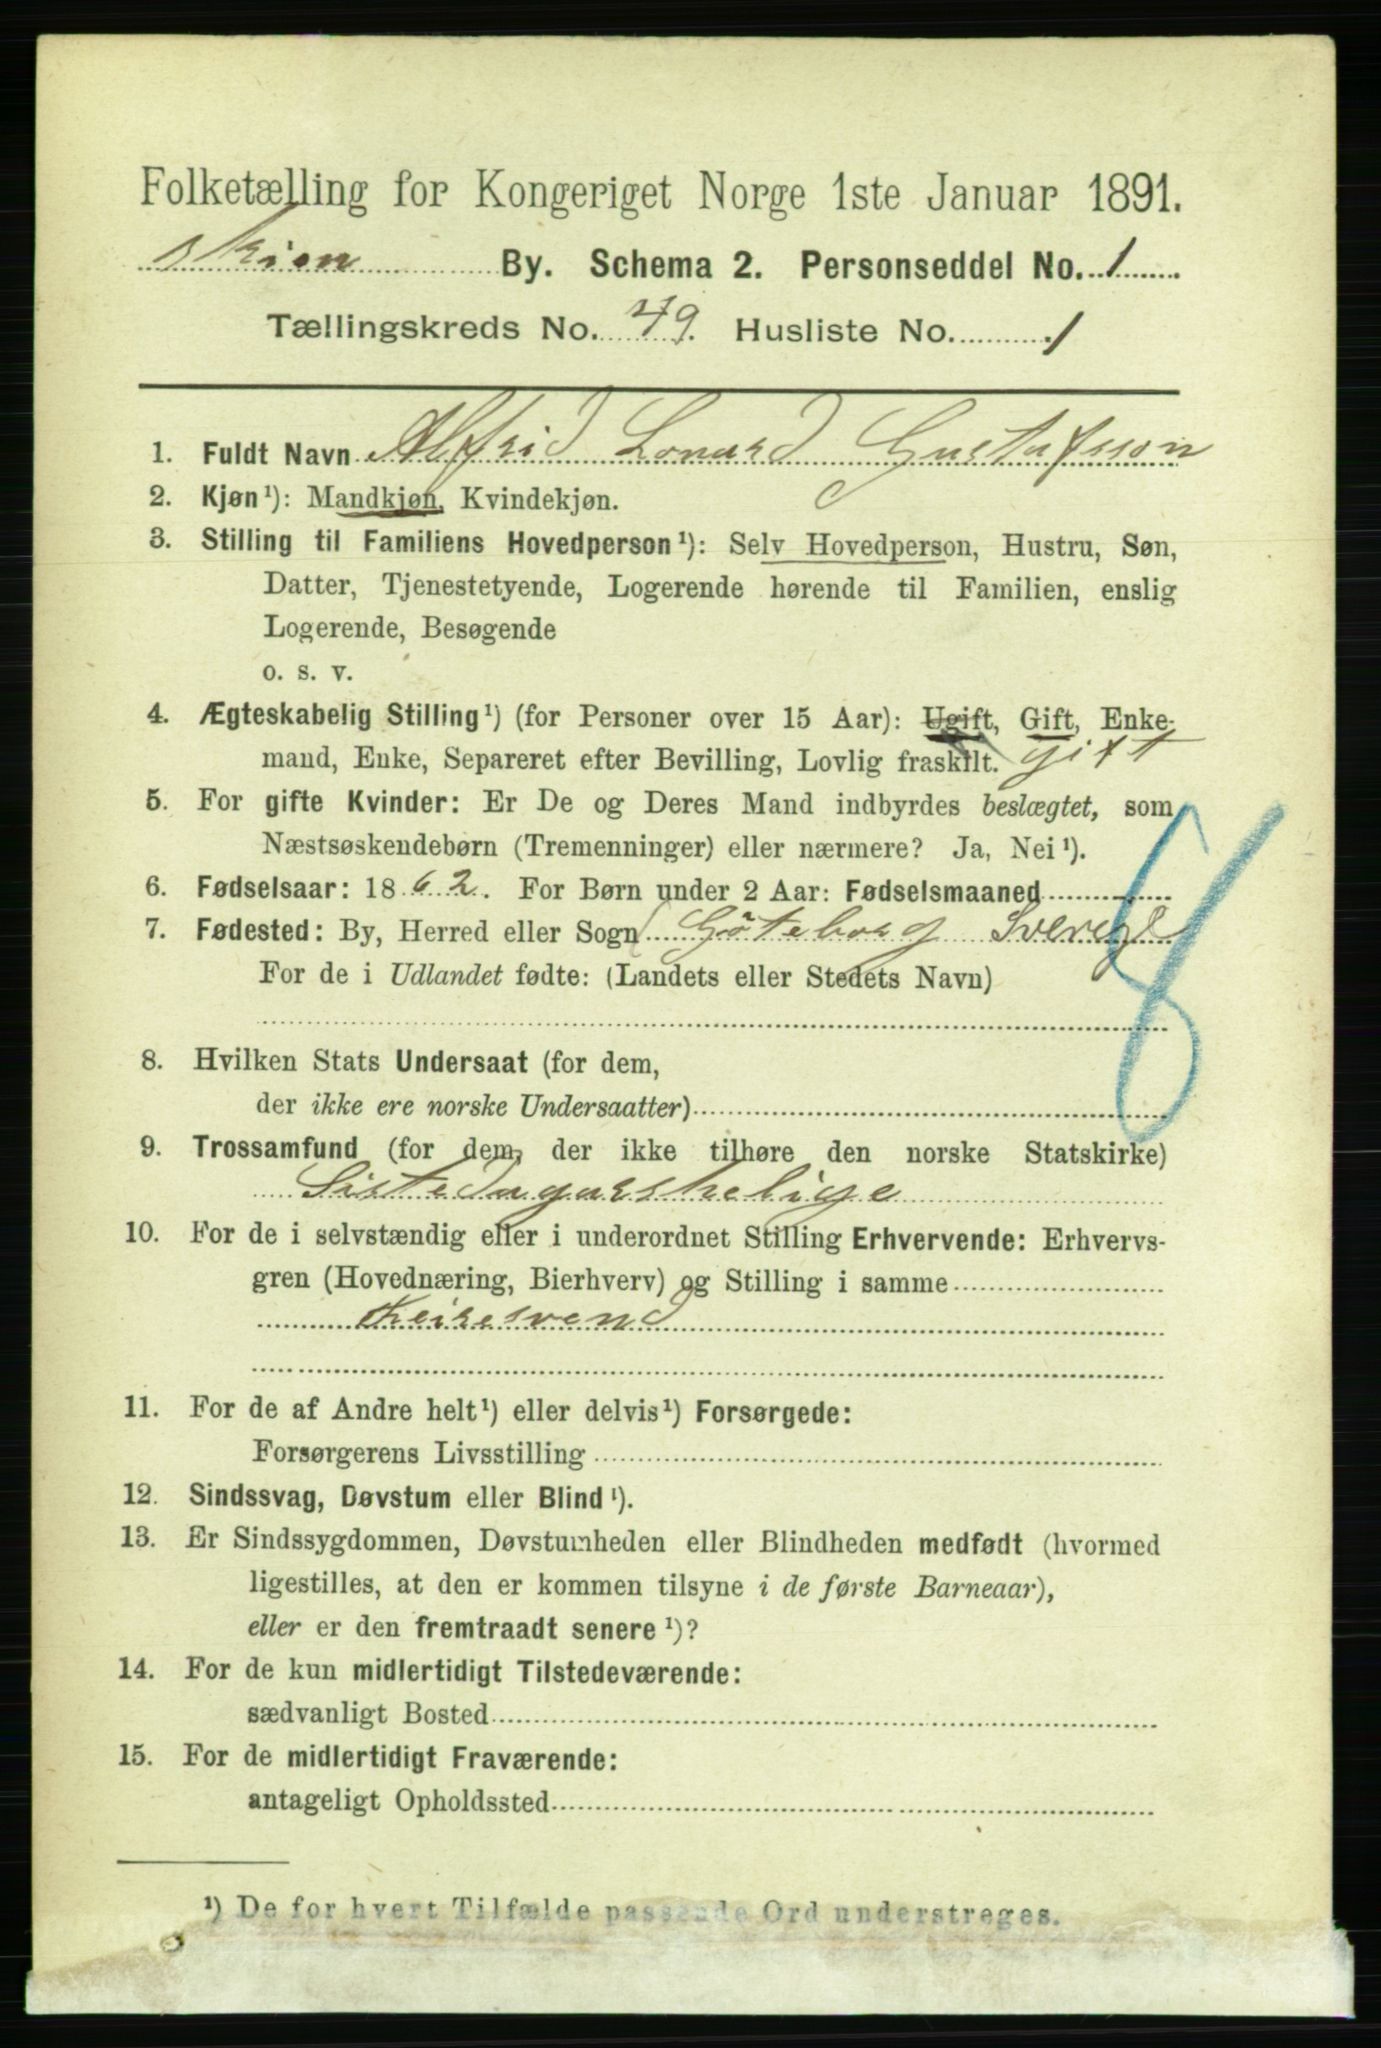 Folketælling for Kongeriget Norge 1ste Januar 1891.
Skien By. Schema 2. Personseddel No. 1
Tællingskreds No. 49. Husliste No. 1
1. Fuldt Navn Alfrid Lonard Gustafsson
2. Kjøn¹): Mandkjøn, Kvindekjøn.
3. Stilling til Familiens Hovedperson¹): Selv Hovedperson, Hustru, Søn,
Datter, Tjenestetyende, Logerende hørende til Familien, enslig
Logerende, Besøgende
o. s. v.
4. Ægteskabelig Stilling¹) (for Personer over 15 Aar): Ugift, Gift, Enke-
mand, Enke, Separeret efter Bevilling, Lovlig fraskilt. gift
5. For gifte Kvinder: Er De og Deres Mand indbyrdes beslægtet, som
Næstsøskendebørn (Tremenninger) eller nærmere? Ja, Nei¹).
6. Fødselsaar: 1862. For Børn under 2 Aar: Fødselsmaaned
7. Fødested: By, Herred eller Sogn Göteborg Sverge
For de i Udlandet fødte: (Landets eller Stedets Navn)
8. Hvilken Stats Undersaat (for dem,
der ikke ere norske Undersaatter)
9. Trossamfund (for dem, der ikke tilhøre den norske Statskirke)
Sistedagarshelige
10. For de i selvstændig eller i underordnet Stilling Erhvervende: Erhvervs-
gren (Hovednæring, Bierhverv) og Stilling i samme
11. For de af Andre helt¹) eller delvis¹) Forsørgede:
Forsørgerens Livsstilling
12. Sindssvag, Døvstum eller Blind¹).
13. Er Sindssygdommen, Døvstumheden eller Blindheden medfødt (hvormed
ligestilles, at den er kommen tilsyne i de første Barneaar),
eller er den fremtraadt senere¹)?
14. For de kun midlertidigt Tilstedeværende:
sædvanligt Bosted
15. For de midlertidigt Fraværende:
antageligt Opholdssted
¹) De for hvert Tilfælde passende Ord understreges.